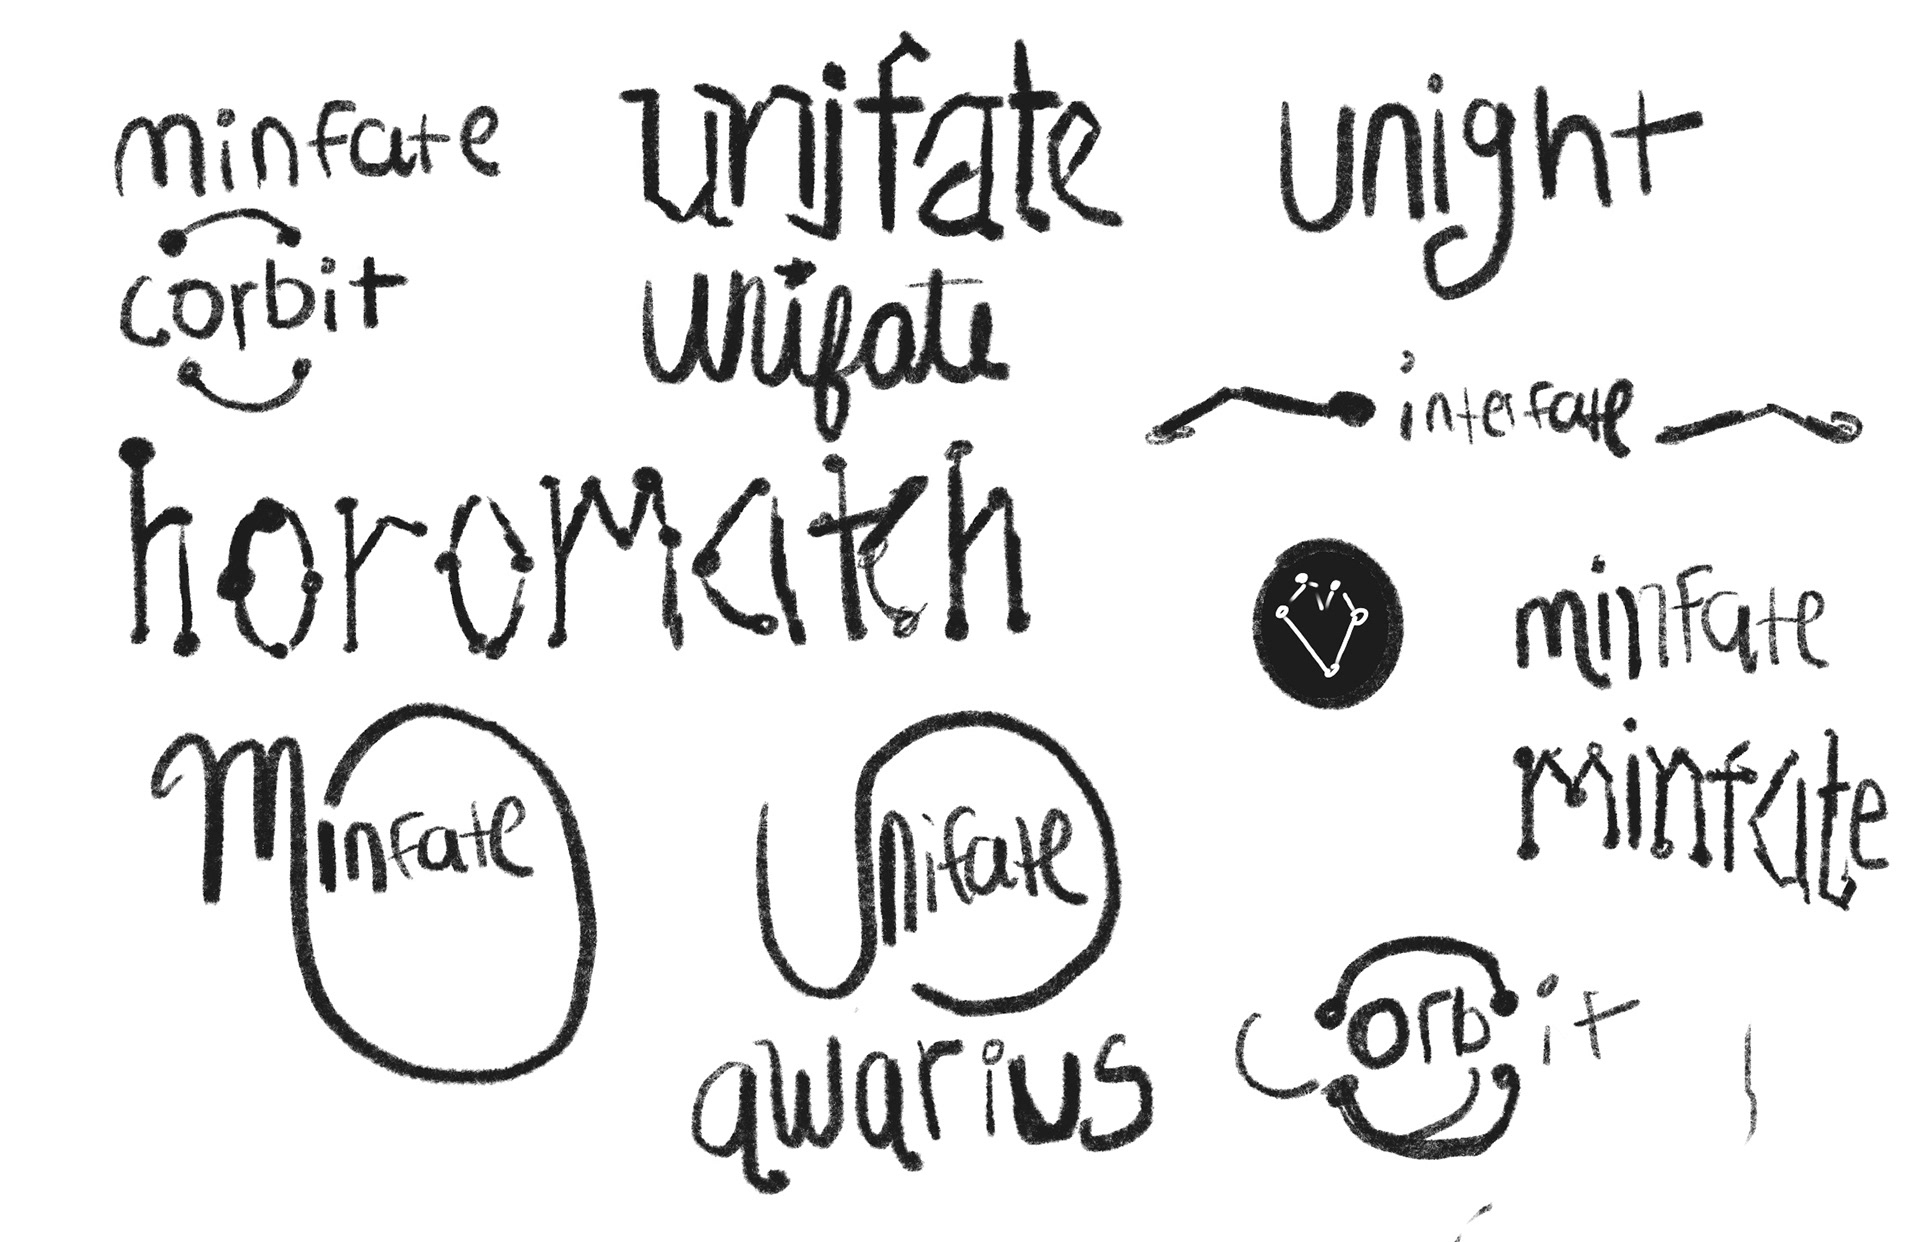 minfate
corbit
unifate
unifate
unight
interfate
horomatch
minfate
minfate
Minfate
Unifate
qwarius
corbit